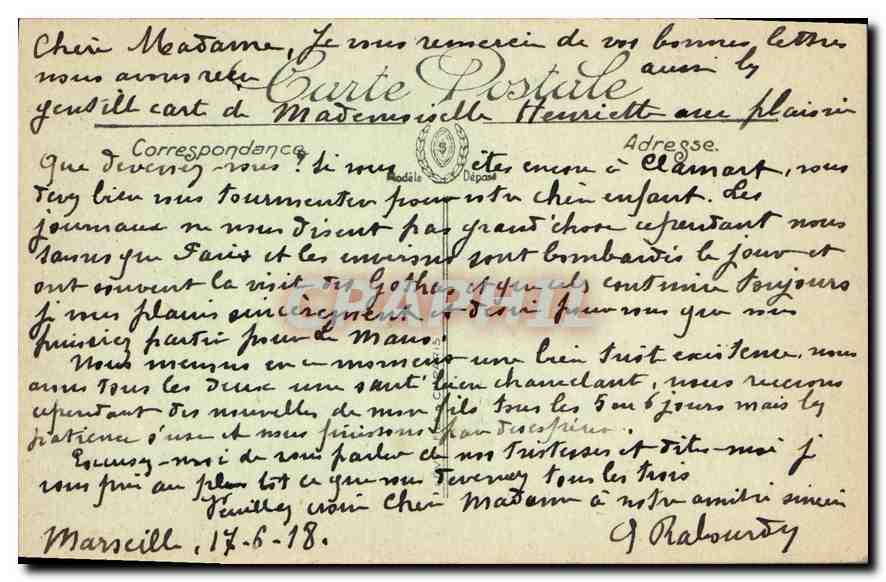 Chère Madame, Je vous remercie de vos bonnes lettres
nous avons reçu aussi la
Carte Postale
gentille carte de Mademoiselle Henriette avec plaisir
Correspondance Adresse.
Modèle Déposé
Que devenez-vous? Si vous êtes encore à Clamart, vous
devez bien vous tourmenter pour votre chère enfant. Les
journaux ne nous disent pas grand'chose cependant nous
savons que Paris et les environs sont bombardés le jour et
ont souvent la visite des Gothas et que cela continue toujours
CPAPHIL
je vous plains sincèrement et désire pour vous que vous
puissiez partir pour Le Mans.
Nous menons en ce moment une bien triste existence, nous
avons tous les deux une santé bien chancelante, nous recevons
cependant des nouvelles de mon fils tous les 5 ou 6 jours mais la
patience s'use et nous finissons par désespérer.
Excusez-moi de vous parler de nos tristesses et dites-moi je
vous prie au plus tôt ce que vous devenez tous les trois
Veuillez croire Chère Madame à notre amitié sincère
Marseille, 17-6-18. Rabourdy